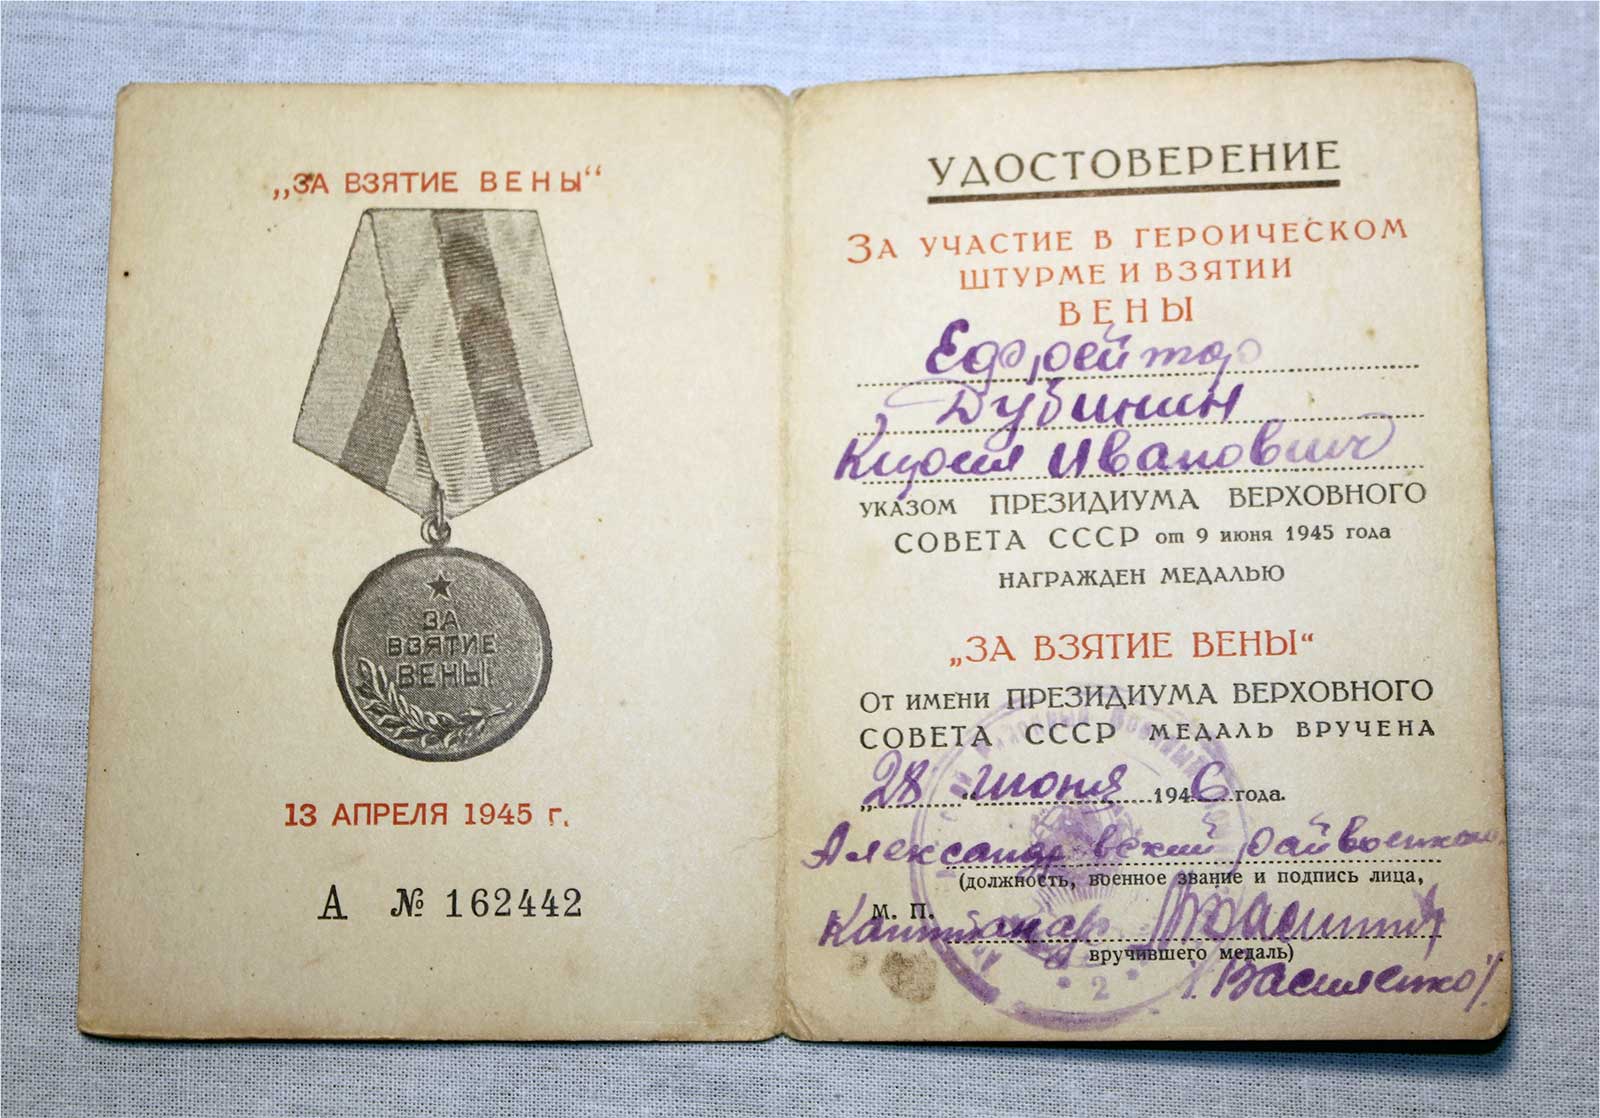 „ЗА ВЗЯТИЕ ВЕНЫ“
ЗА
ВЗЯТИЕ
ВЕНЫ
13 АПРЕЛЯ 1945 г.
А № 162442
УДОСТОВЕРЕНИЕ
ЗА УЧАСТИЕ В ГЕРОИЧЕСКОМ
ШТУРМЕ И ВЗЯТИИ
ВЕНЫ
Ефрейтор
Дубинин
Кирилл Иванович
УКАЗОМ ПРЕЗИДИУМА ВЕРХОВНОГО
СОВЕТА СССР от 9 июня 1945 года
НАГРАЖДЕН МЕДАЛЬЮ
„ЗА ВЗЯТИЕ ВЕНЫ“
ОТ ИМЕНИ ПРЕЗИДИУМА ВЕРХОВНОГО
СОВЕТА СССР МЕДАЛЬ ВРУЧЕНА
„28“ июня 1946 года.
Александровский Райвоенком
(должность, военное звание и подпись лица,
М. П.
Капитан
вручившего медаль)
/Василенко/
* 2 *